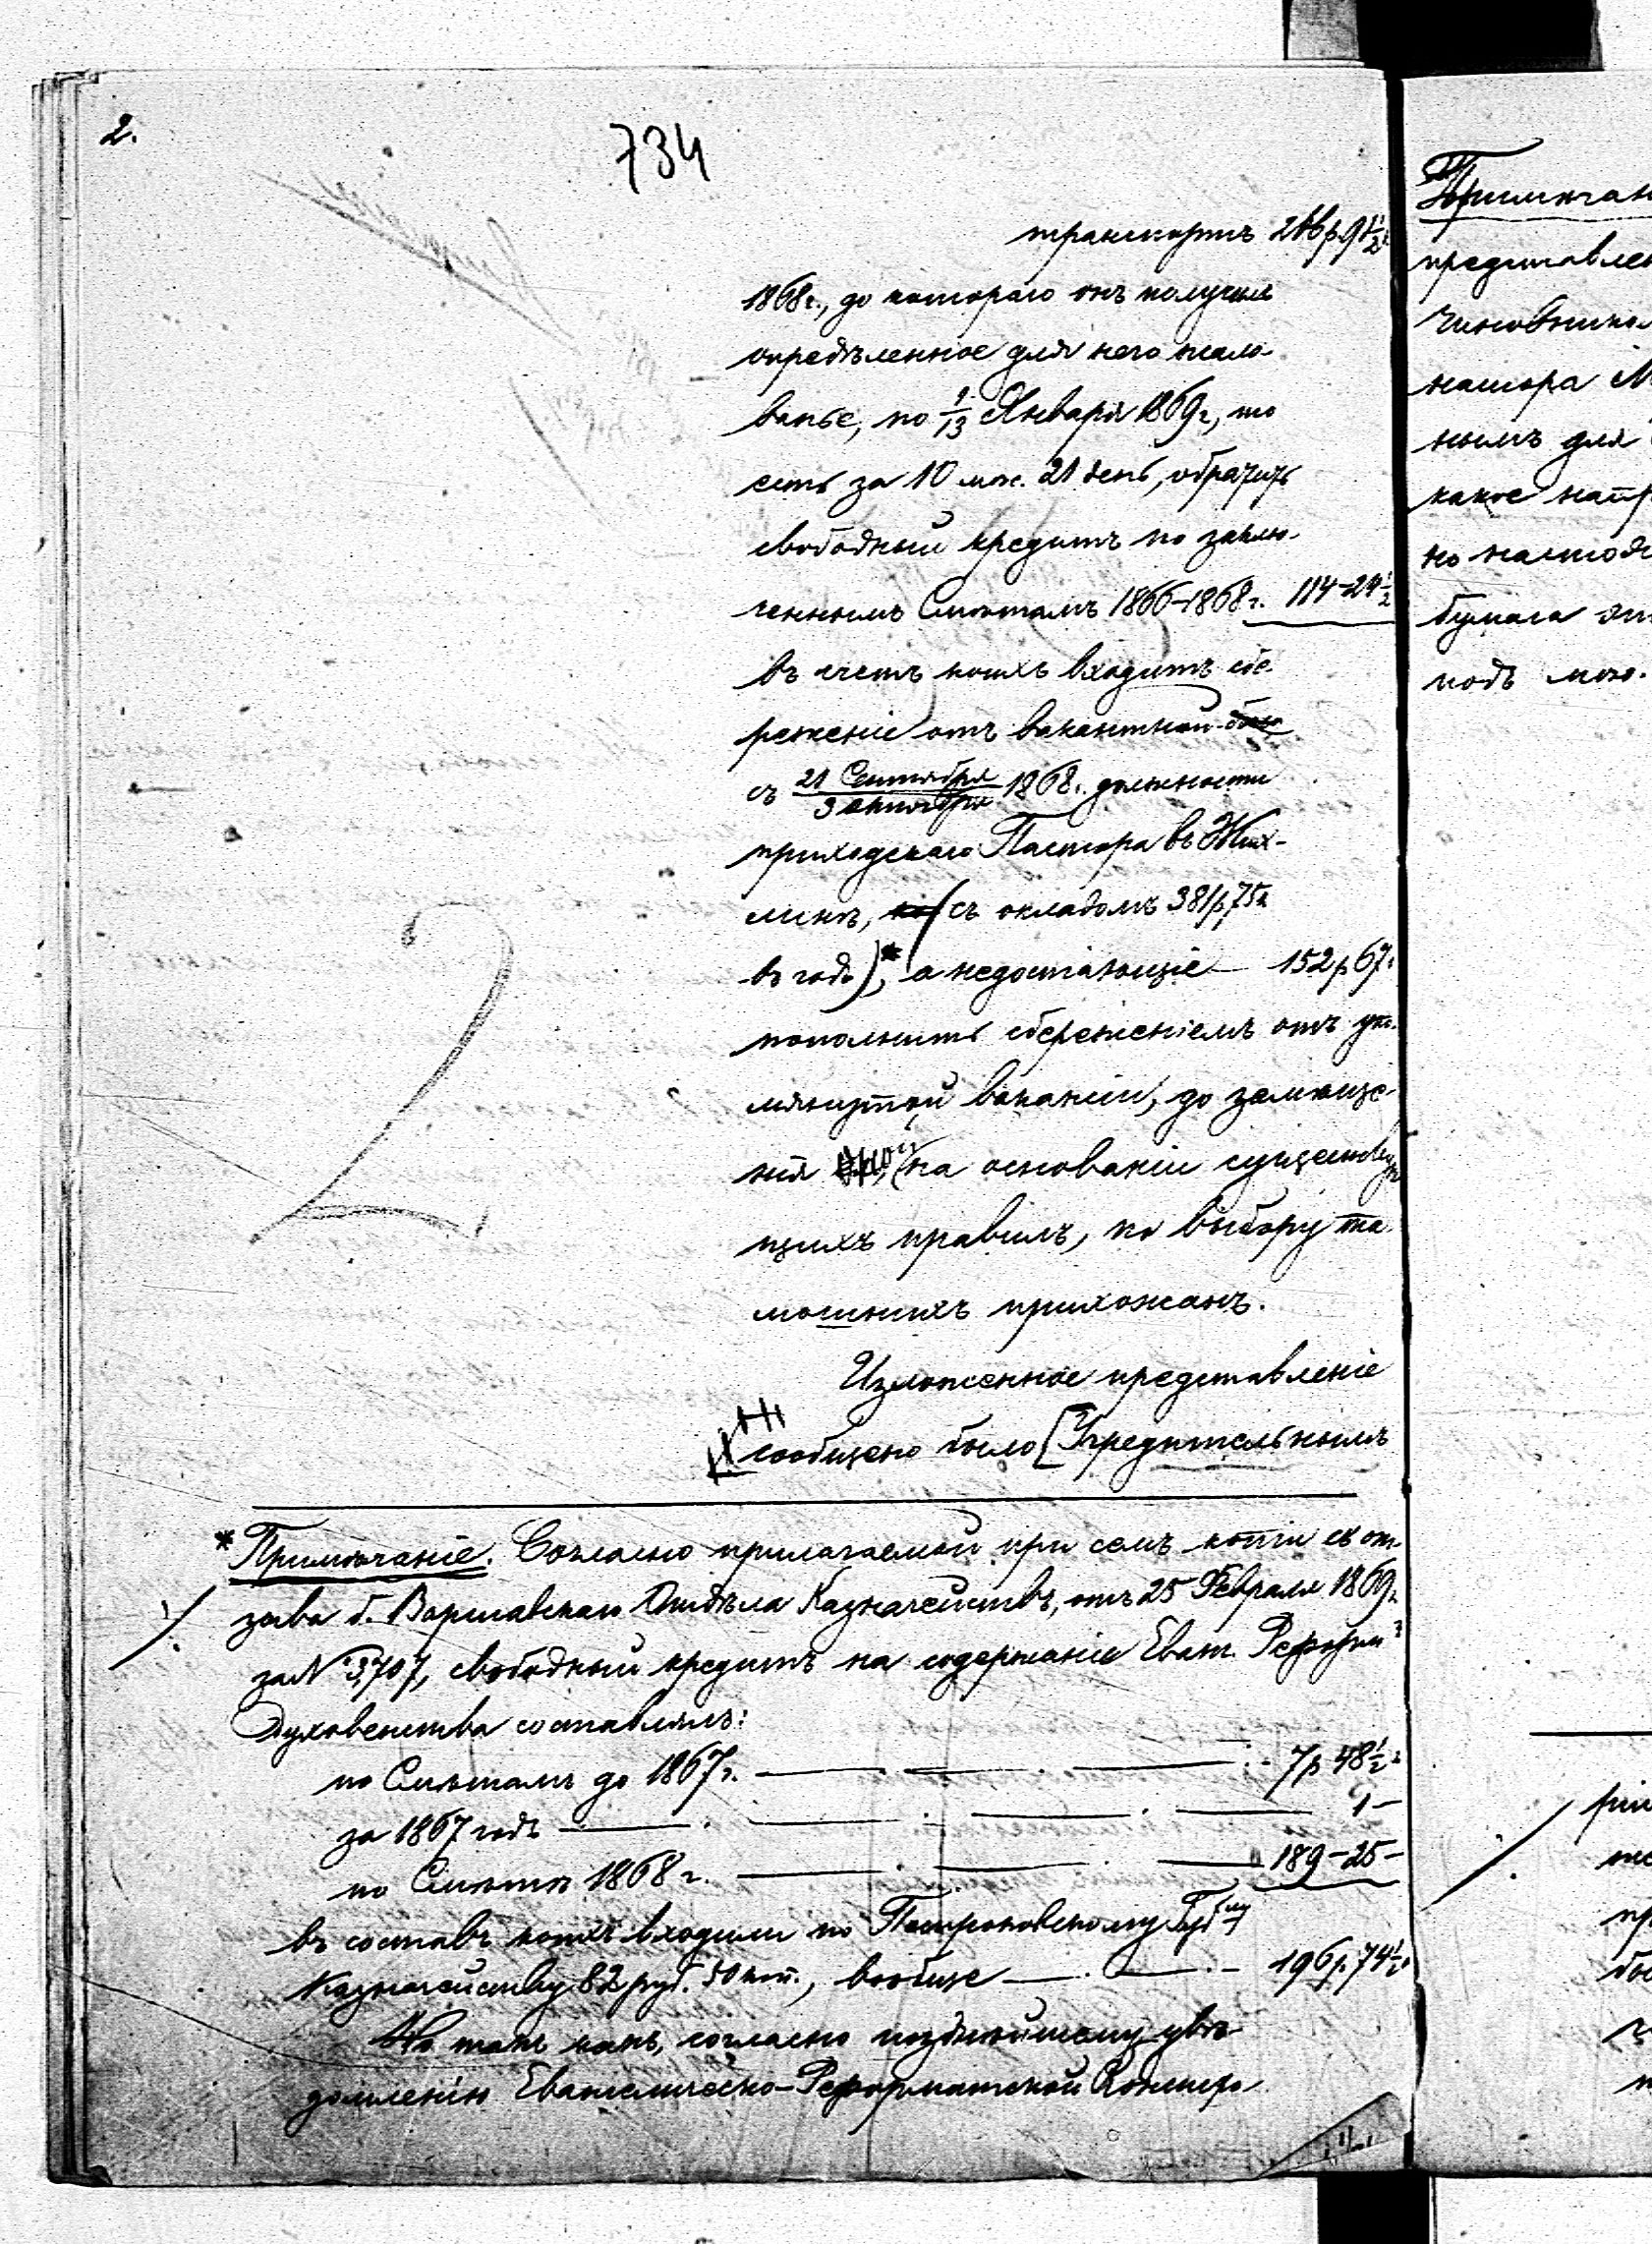 2.
734
транспортъ 266 р. 91½ к
1868 г., до котораго онъ получалъ
опредѣленное для него жало-
ванье, по 1/13 Января 1869 г., то
есть за 10 мѣс. 21 день, обратить
свободный кредитъ по заклю-
ченнымъ Смѣтамъ 1866-1868 г. 114-24½
въ счетъ коихъ входитъ сбе-
реженіе отъ вакантной
съ 21 Сентября / 3 Октября 1868 г. должности
приходскаго Пастора въ Жих-
линѣ, (съ окладомъ 381 р. 75 к
въ годъ)*, а недостающіе — 152 р 67.
пополнить сбереженіемъ отъ упо-
мянутой вакансіи, до замѣще-
нія оной, на основаніи существую-
щихъ правилъ, по выбору та-
мошнихъ прихожанъ.
Изложенное представленіе
сообщено было [Учредительнымъ
* Примѣчаніе. Согласно прилагаемой при семъ копіи съ от-
зыва б. Варшавскаго Отдѣла Казначействъ, отъ 25 Февраля 1869 г.
за N 3707, свободный кредитъ на содержаніе Еванг. Реформ.
Духовенства составлялъ:
по Смѣтамъ до 1867 г. — 7 р 48½ к
за 1867 годъ — 1 —
по Смѣтѣ 1868 г. — 189-25-
въ составъ коихъ входили по Петроковскому Губ.му
Казначейству 82 руб. 50 коп., вообще — 196 р. 74½ к
Но такъ какъ, согласно позднѣйшему увѣ-
домленію Евангелическо-Реформатской Консисто-
Примѣчан
представлен
Чиновнико
настора М
нымъ для
какое напр
но настоя
бумага
подъ